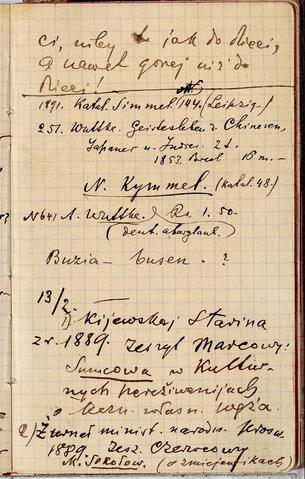 ci, niby to jak do dzieci,
a nawet gorzej niż do
dzieci!
1891. Katal. Simmel (144. Leipzig.)
251. Wuttke. Geistesleben d. Chinesen,
Japaner u. Inder. 2 t.
1853. Bresl 15 m.—
N. Kymmel. (Katal. 48.)
N 641 A. Wuttke. R. 1.50.
(deut. aberglaub.)
Buzia – busen. ?
13/2.
1) Kijewskaj Starina
z r. 1889. Zeszyt Marcowy:
Sumcowa w Kultur-
nych pereżiwanijach
o węża.
2) Żurnał minist. narodn. prosw.
1889 zesz. Czerwcowy
M. Sokołow. (o zmiejewikach)